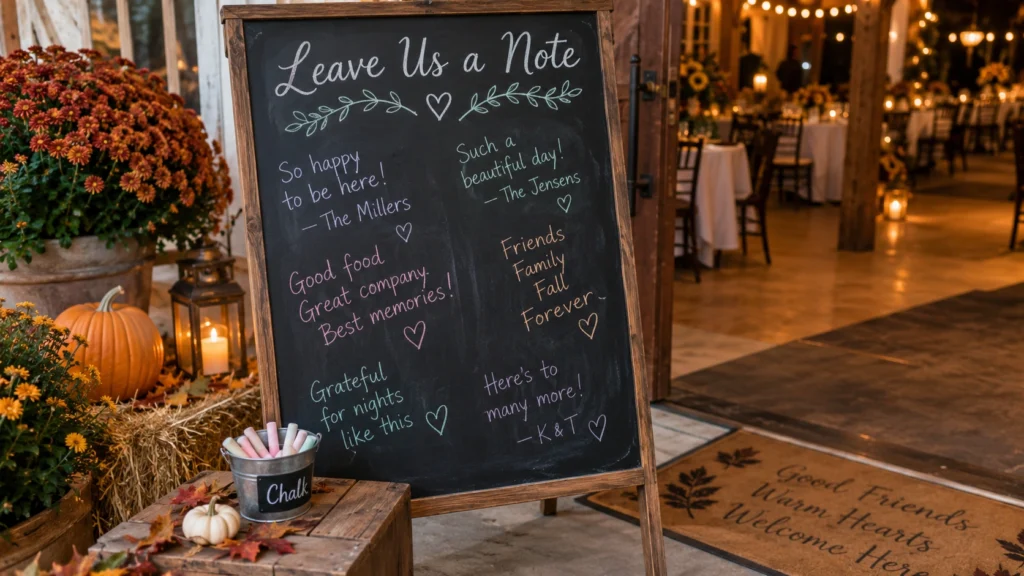 Leave Us a Note
So happy
to be here!
— The Millers
Good food
Great company
Best memories!
Grateful
for nights
like this
Such a
beautiful day!
— The Jensens
Friends
Family
Fall
Forever
Here's to
many more!
— K & T
Chalk
Good Friends
Warm Hearts
Welcome Here